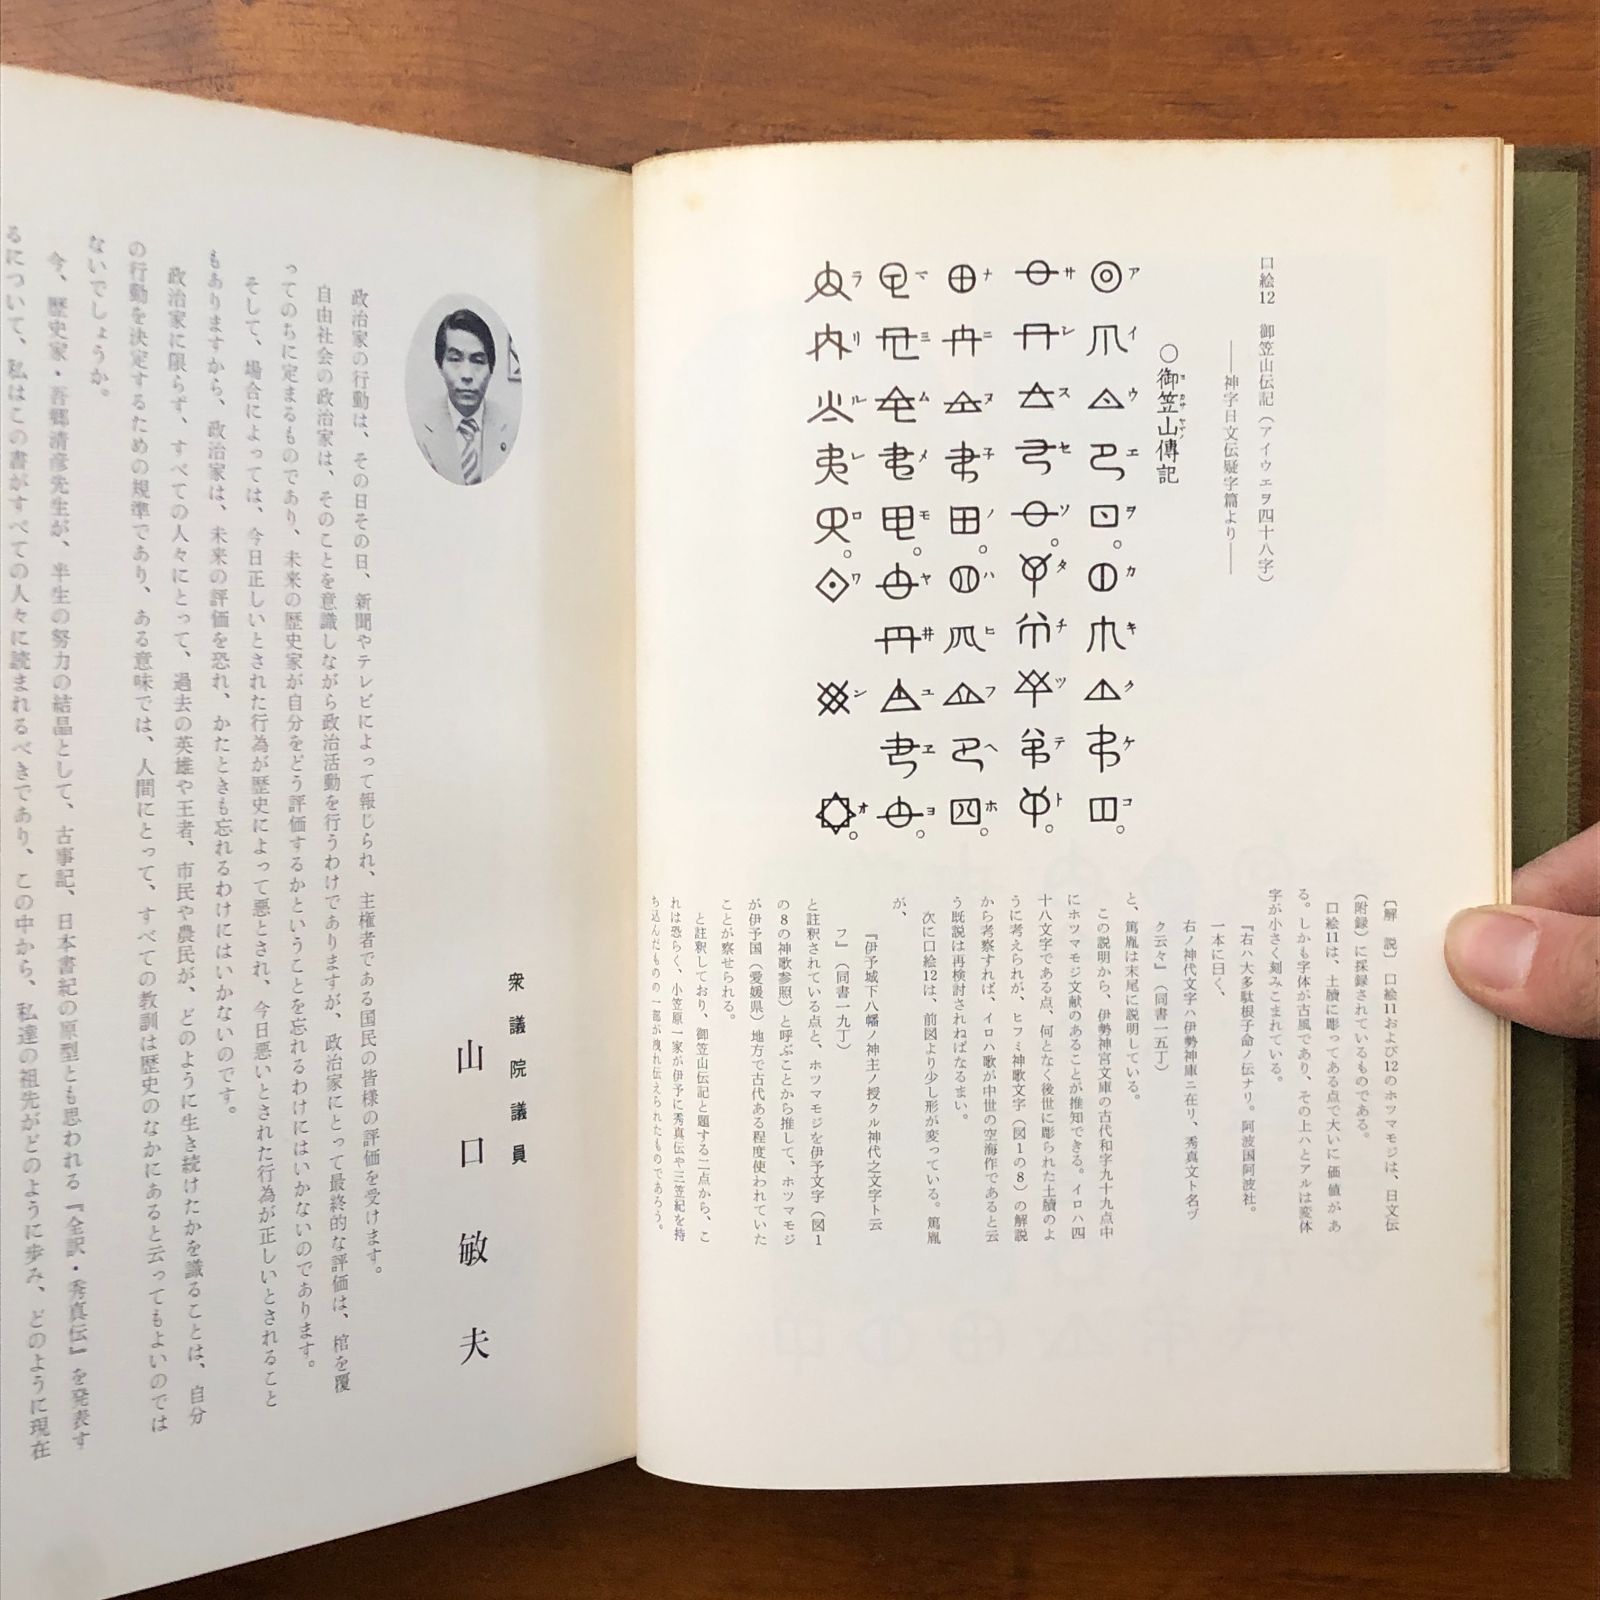 口絵12　御笠山伝記（アイウエヲ四十八字）
――神字日文伝疑字篇より――
○御笠山傳記
ミカサヤマノ
アイウエヲ。カキクケコ。
サシスセソ。タチツテト。
ナニヌ子ノ。ハヒフヘホ。
マミムメモ。ヤ井ユヱヨ。
ラリルレロ。ワンオ。
〔解　説〕　口絵11および12のホツマモジは、日文伝
（附録）に採録されているものである。
口絵11は、土牘に彫ってある点で大いに価値があ
る。しかも字体が古風であり、その上ハとアルは変体
字が小さく刻みこまれている。
『右ハ大多駄根子命ノ伝ナリ。阿波国阿波社。
一本に曰く、
右ノ神代文字ハ伊勢神庫ニ在リ、秀真文ト名ヅ
ク云々』（同書一五丁）
と、篤胤は末尾に説明している。
この説明から、伊勢神宮文庫の古代和字九十九点中
にホツマモジ文献のあることが推知できる。イロハ四
十八文字である点、何となく後世に彫られた土牘のよ
うに考えられが、ヒフミ神歌文字（図１の８）の解説
から考察すれば、イロハ歌が中世の空海作であると云
う既説は再検討されねばなるまい。
次に口絵12は、前図より少し形が変っている。篤胤
が、
『伊予城下八幡ノ神主ノ授クル神代之文字ト云
フ』（同書一九丁）
と註釈されている点と、ホツマモジを伊予文字（図１
の８の神歌参照）と呼ぶことから推して、ホツマモジ
が伊予国（愛媛県）地方で古代ある程度使われていた
ことが察せられる。
と註釈しており、御笠山伝記と題する二点から、こ
れは恐らく、小笠原一家が伊予に秀真伝や三笠紀を持
ち込んだものの一部が洩れ伝えられたものであろう。
衆議院議員
山口敏夫
政治家の行動は、その日その日、新聞やテレビによって報じられ、主権者である国民の皆様の評価を受けます。
自由社会の政治家は、そのことを意識しながら政治活動を行うわけでありますが、政治家にとって最終的な評価は、棺を覆
ってのちに定まるものであり、未来の歴史家が自分をどう評価するかということを忘れるわけにはいかないのであります。
そして、場合によっては、今日正しいとされた行為が歴史によって悪とされ、今日悪いとされた行為が正しいとされること
もありますから、政治家は、未来の評価を恐れ、かたときも忘れるわけにはいかないのです。
政治家に限らず、すべての人々にとって、過去の英雄や王者、市民や農民が、どのように生き続けたかを識ることは、自分
の行動を決定するための規準であり、ある意味では、人間にとって、すべての教訓は歴史のなかにあると云ってもよいのでは
ないでしょうか。
今、歴史家・吾郷清彦先生が、半生の努力の結晶として、古事記、日本書紀の原型とも思われる『全訳・秀真伝』を発表す
るについて、私はこの書がすべての人々に読まれるべきであり、この中から、私達の祖先がどのように歩み、どのように現在